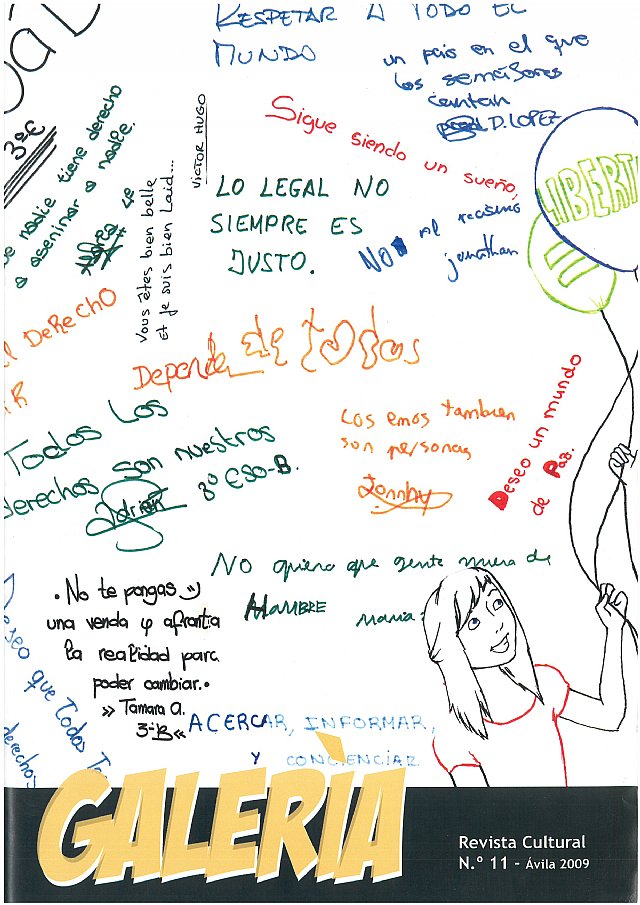 RESPETAR A TODO EL
MUNDO
un pais en el que
los semáforos
cantan
D. LOPEZ
3ºE
nadie tiene derecho
a asesinar a nadie.
VICTOR HUGO
Vous êtes bien belle
et je suis bien Laid...
Sigue siendo un sueño,
LIBERT
LO LEGAL NO
SIEMPRE ES
JUSTO.
NO al racismo
jonathan
DERECHO
Depende de todos
Todos los
derechos son nuestros
Adrián 3º ESO-B.
Los emos tambien
son personas
Jonnhy
Deseo un mundo
de Paz.
No quiero que gente muera de
HAMBRE maria
• No te pongas
una venda y afronta
la realidad para
poder cambiar. •
» Tamara A.
3ºB «
Deseo que Todos
derechos
ACERCAR, INFORMAR,
Y CONCIENCIAR
GALERÌA
Revista Cultural
N.º 11 - Ávila 2009